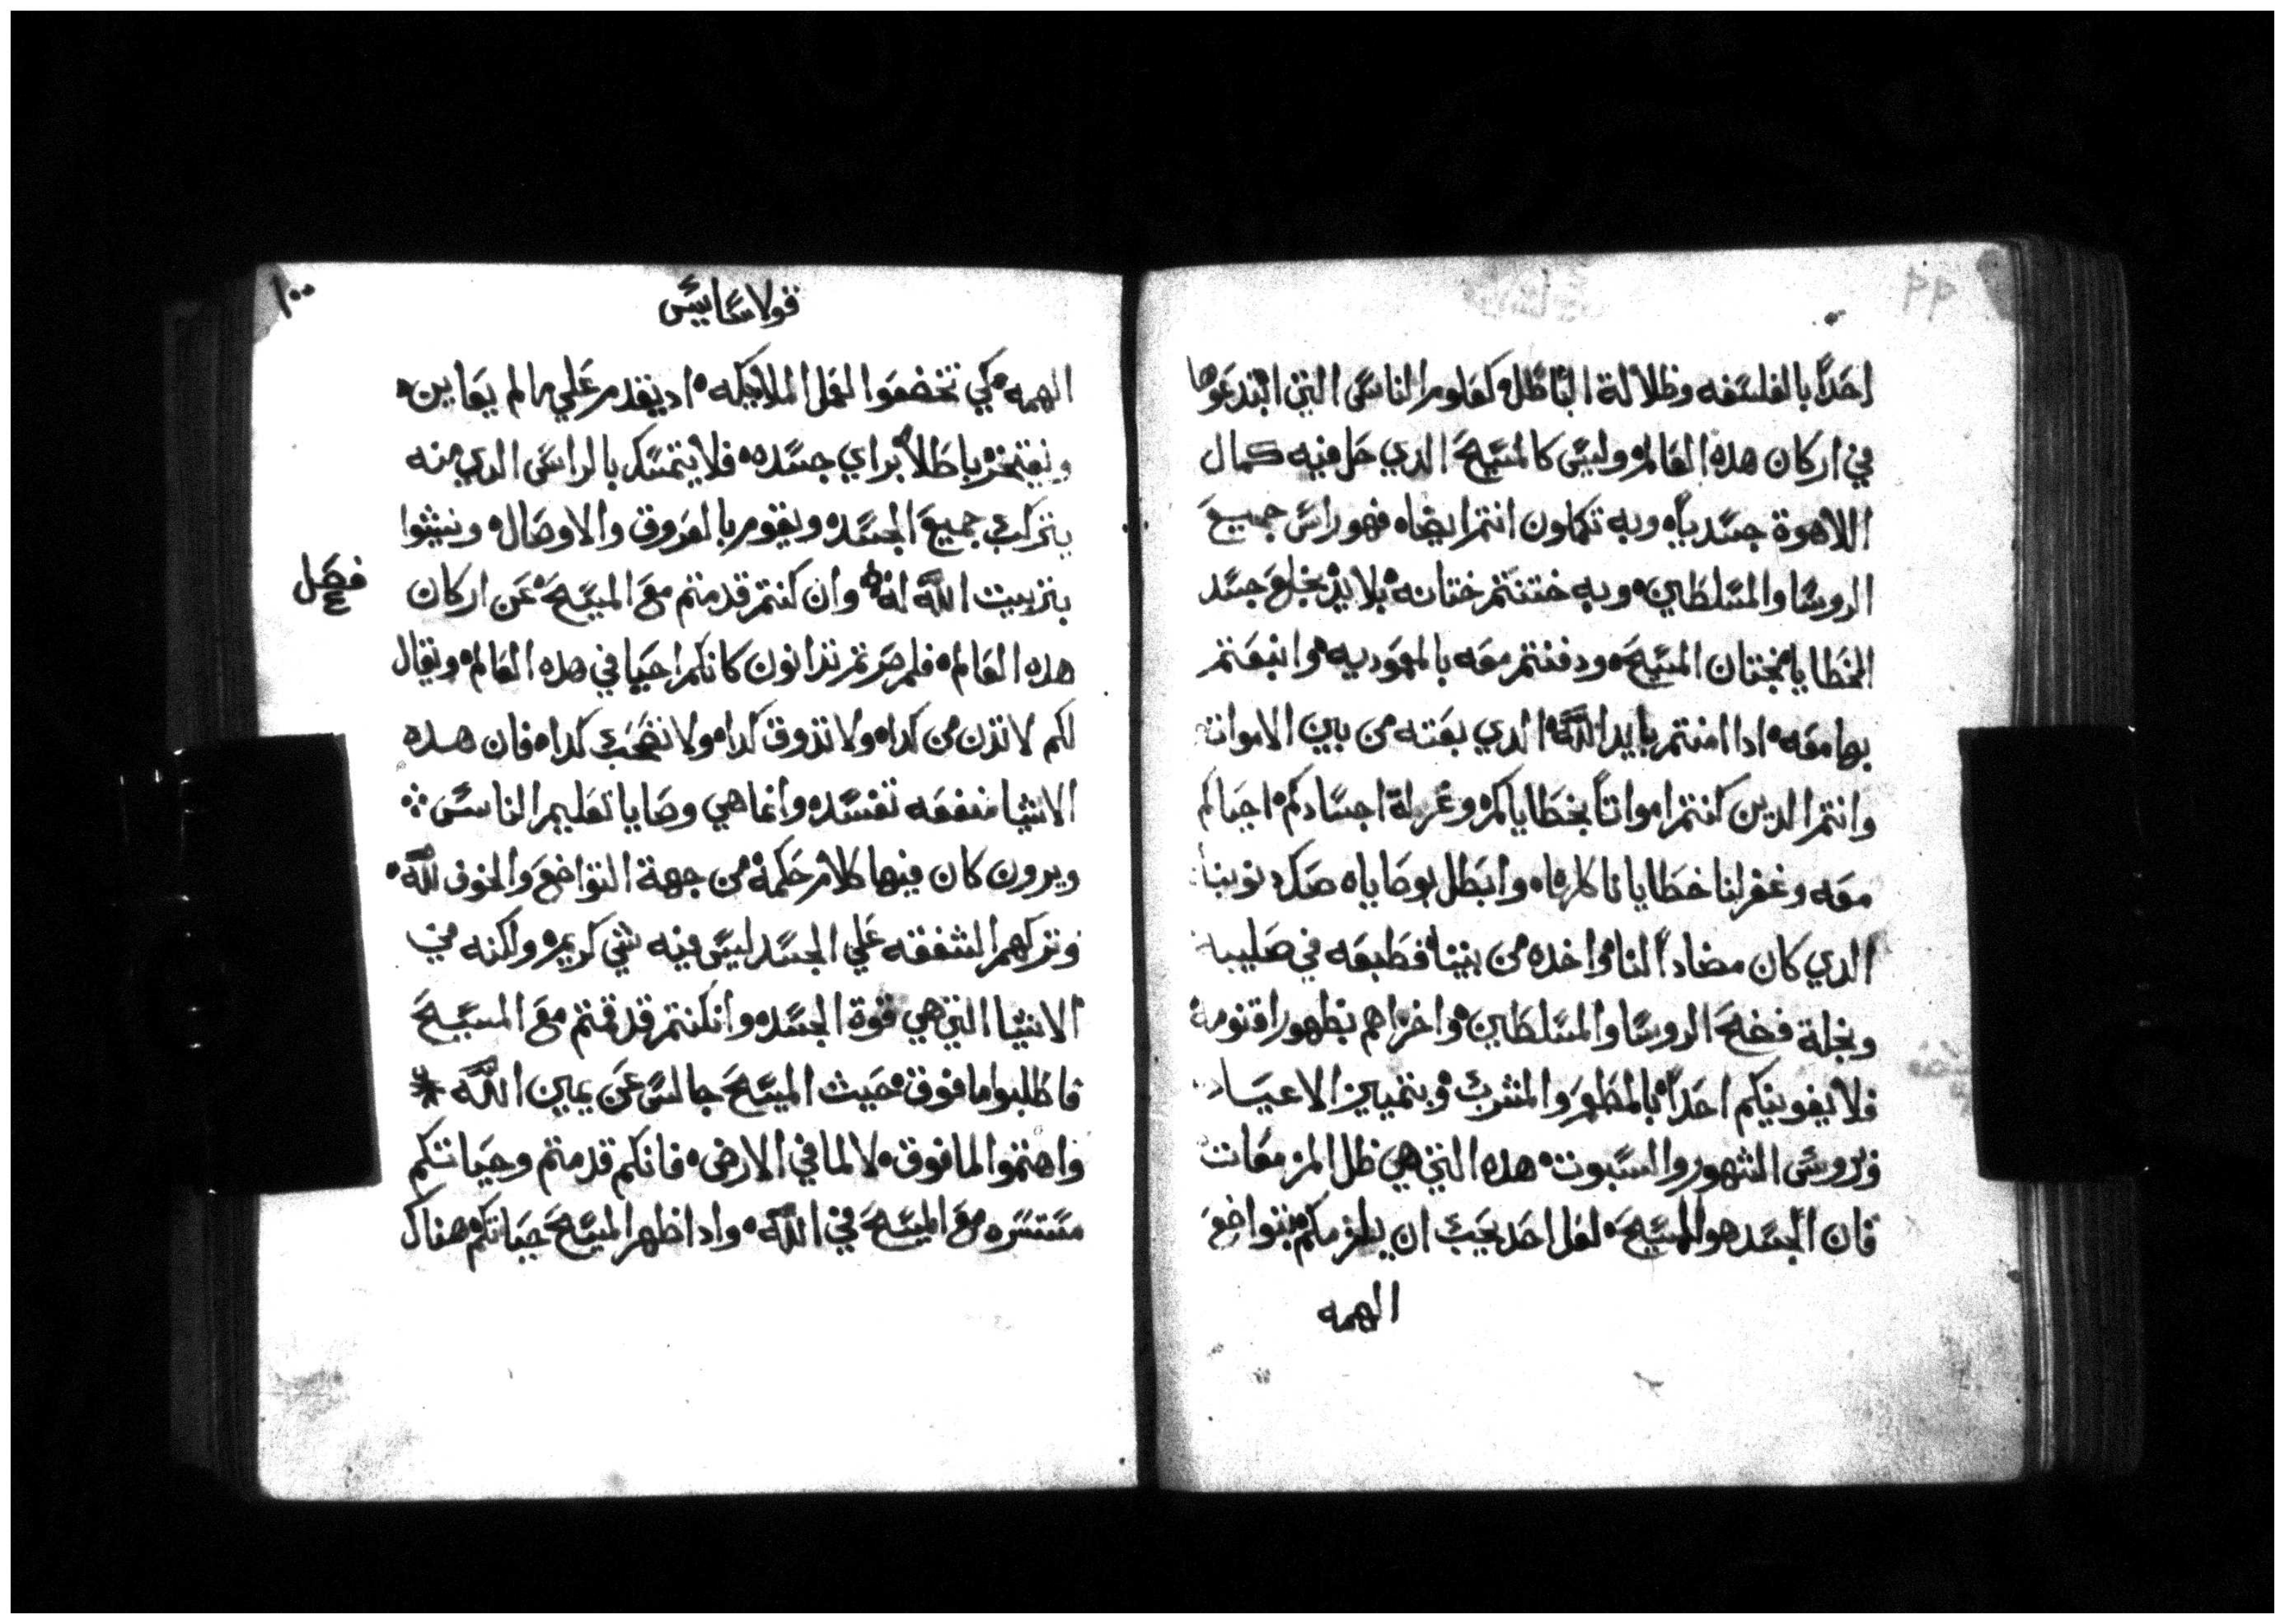 احداً بالفلسفه وظلالة الباطل كعلوم الناس التي ابتدعوها
في اركان هده العالم وليس كالمسيح الدي حل فيه كمال
اللاهوة جسدياً وبه تكملون انتم ايضاً فهو راس جميع
الروسا والمسلطين وبه ختنتم ختانه بلا يد بخلع جسد
الخطايا بختان المسيح ودفنتم معه بالمعموديه وانبعتتم
بها معه ادا امنتم بايد الله الدي بعته من بين الاموات
وانتم الدين كنتم امواتاً بخطاياكم وغرلة اجسادكم احياكم
معه وغفر لنا خطايانا كلها وابطل بوصاياه صك دنوبنا
الدي كان مضاداً لنا واخده من بيننا فطبعه في صليبه
وبخلة فضح الروسا والمسلطين واخزاهم بظهور اقنومه
فلا يغوينكم احداً بالمطعم والمشرب وبتمييز الاعياد
وروس الشهور والسبوت هده التي هي ظل المزمعات
فان الجسد هو المسيح لعل احد يحب ان يلزمكم بتواضع
الهمه
١٠٠
قولاسايس
الهمه كي تخضعوا لعمل الملايكه اد يقدم علي ما لم يعاين
ويفتخر باطلاً براي جسده فلا يتمسك بالراس الدي منه
يتركب جميع الجسد ويقوم بالعروق والاوصال وينشوا
بتربيت الله له وان كنتم قد متم مع المسيح عن اركان
فصل
هده العالم فلم صرتم تدانون كانكم احيا في هده العالم ويقال
لكم لا تدن من كدا ولا تدوق كدا ولا تصحب كدا فان هده
الاشيا منفعه تفسد وانما هي وصايا تعليم الناس
ويرون كان فيها كلام حكمة من جهة التواضع والخوف لله
وتركهم الشفقه علي الجسد ليس فيه شي كريم ولكنه في
الاشيا التي هي قوة الجسد وانكنتم قد قمتم مع المسيح
فاطلبوا ما فوق حيث المسيح جالس عن يمين الله
واهتموا لما فوق لا لما في الارض فانكم قد متم وحياتكم
مستتره مع المسيح في الله وادا ظهر المسيح حياتكم هناك